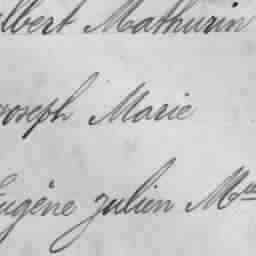 lbert Mathurin
Joseph Marie
Eugène Julien M